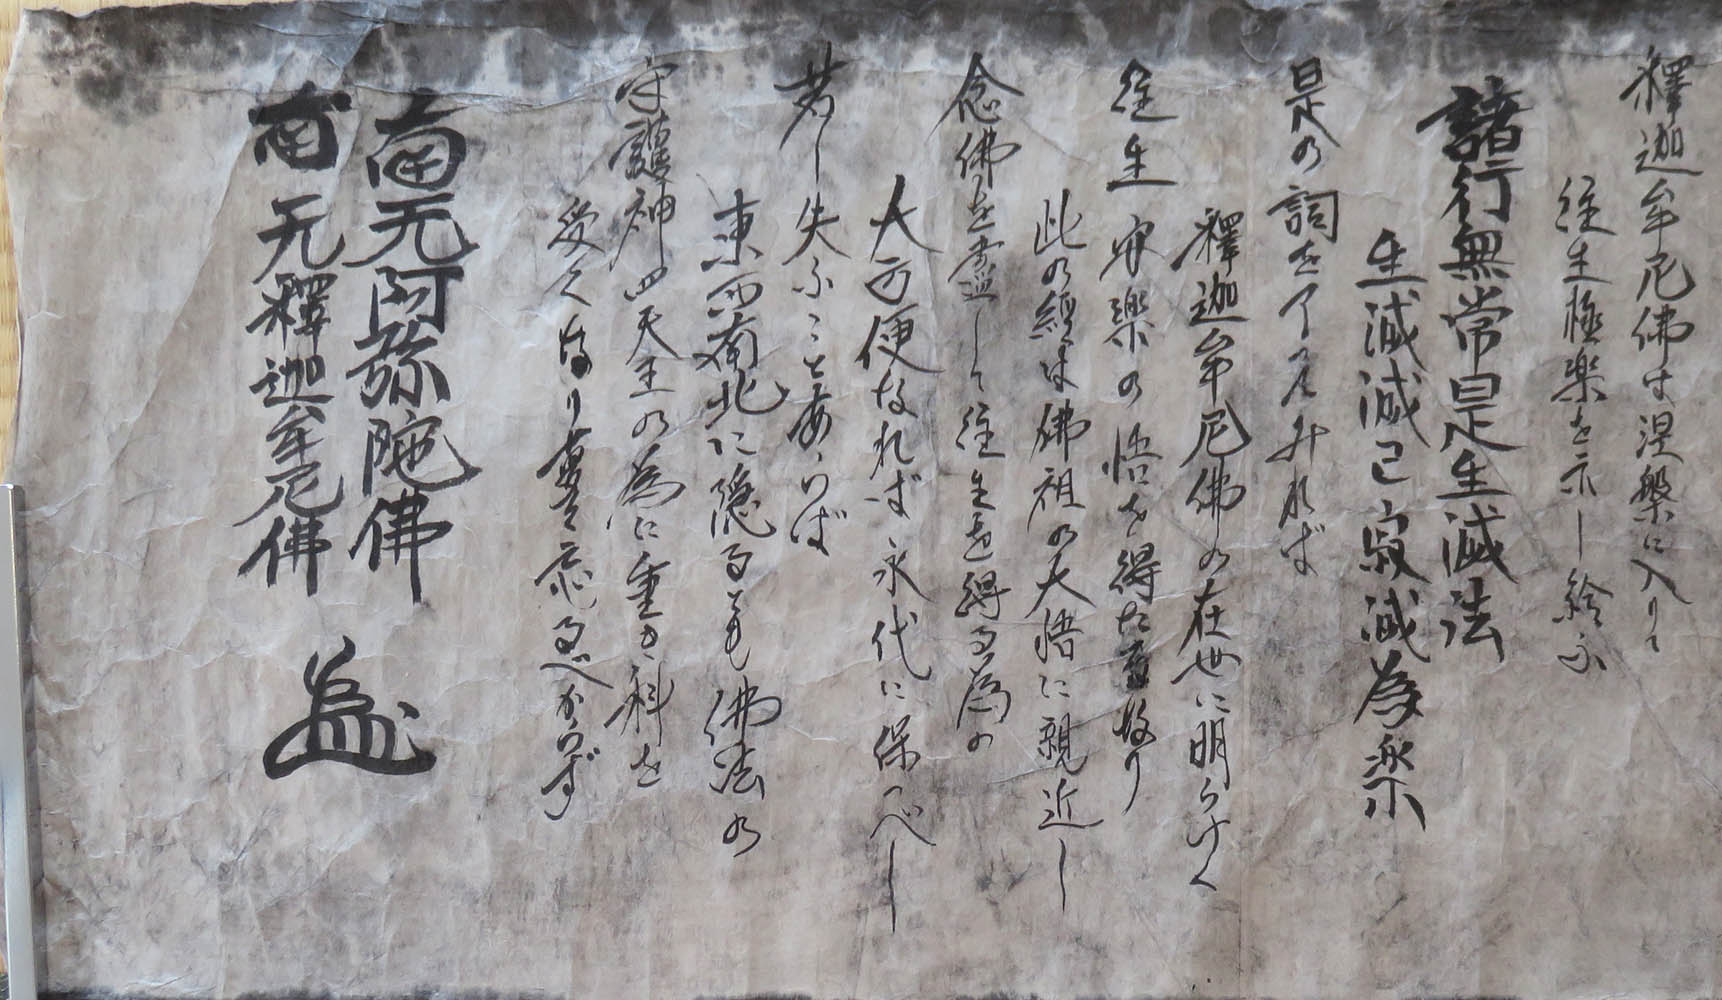 釋迦牟尼佛は涅槃に入りて
往生極楽を示し給ふ
諸行無常是生滅法
生滅滅已寂滅為楽
是の詞を以て見れば
釋迦牟尼佛の在世に明らけく
往生安樂の悟を得た故り
此の經は佛祖の大悟に親近し
念佛を盡して往生を得る為の
大方便なれば永代に保べし
若し失ふこと有らば
東西南北に隠るとも佛法の
守護神四天王の為に重き科を
受くなり夢々忘るべからず
南无阿弥陀佛
南无釋迦牟尼佛